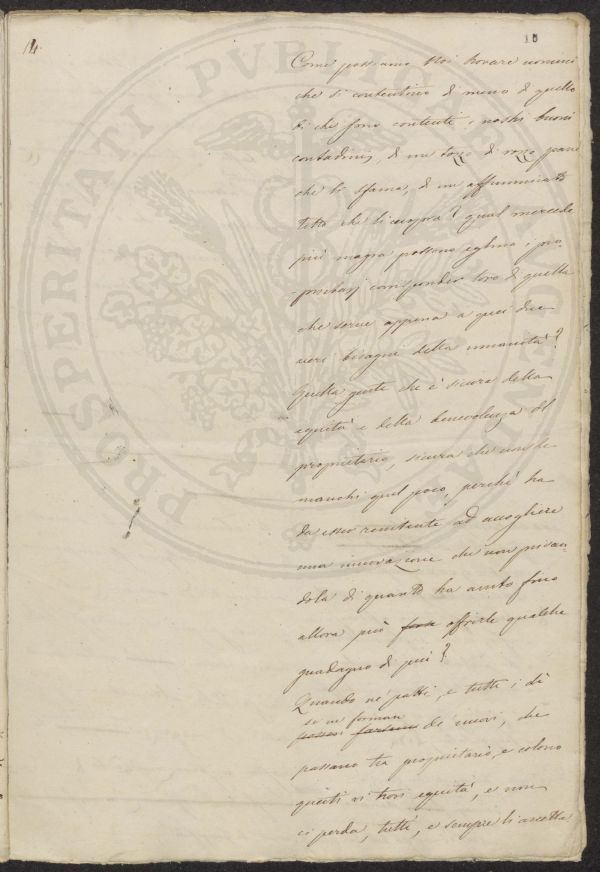 14
15
Come possiamo Noi trovare uomini
che si contentino di meno di quello
di che sono contenti i nostri buoni
contadini, di un tozzo di rozzo pane
che li sfama, di un affumicato
tetto che li cuopra? qual mercede
più magra possono eglino i pro-
-prietarj corrisponder loro di quella
che serve appena a quei due
veri bisogni della umanità?
Quella gente che è sicura della
equità e della benevolenza del
proprietario, sicura che non le
manchi quel poco, perchè ha
da esser renitente ad accogliere
una innovazione che non privan-
dola di quanto ha avuto fino
allora può forse offrirle qualche
guadagno di più?
Quando ne' patti, e tutti i dì
se ne forman
possosi de' nuovi, che
passano tra proprietario, e colono
quisti vi trovi equità, e non
ci perda, tutti, e sempre li accetta
PROSPERITATI PVBLICAE AVGENDAE